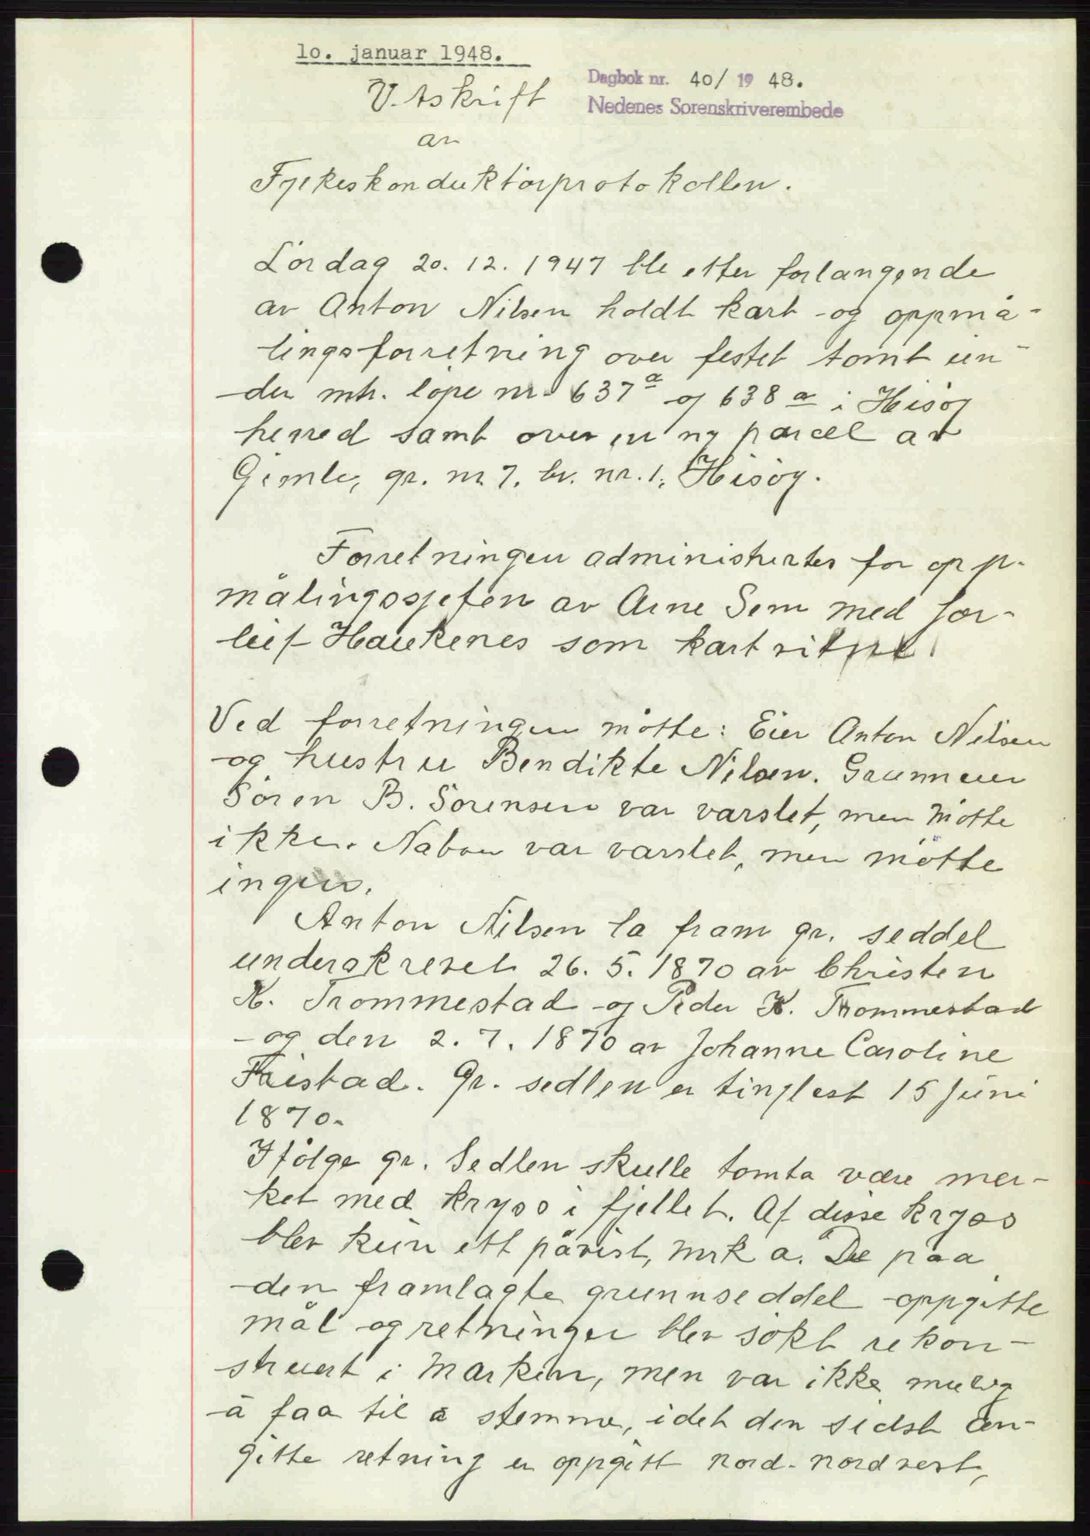 10. januar 1948.
Dagbok nr. 40/ 19 48.
Nedenes Sorenskriverembede
Utskrift
av
Fylkeskonduktörprotokollen.
Lördag 20. 12. 1947 ble etter forlangende
av Anton Nilsen holdt kart- og oppmå-
lingsforretning over festet tomt un-
der mtr. löpe nr. 637a og 638a i Hisöy
herred samt over en ny parcel av
Gimle, gr. nr. 7. br. nr. 1, Hisöy.
Forretningen administrertes for opp-
målingssjefen av Arne Sem med Tor-
leif Haukenes som kart
Ved forretningen mötte: Eier Anton Nilsen
og hustru Bendikte Nilsen. Grunneier
Sören B. Sörensen var varslet, men mötte
ikke. Naboer var varslet, men mötte
ingen.
Anton Nilsen la fram gr. seddel
underskrevet 26. 5. 1870 av Christen
K. Trommestad og Peder K. Trommestad
og den 2. 7. 1870 av Johanne Caroline
Fristad. Gr. sedlen er tinglest 15 juni
1870.
Ifölge gr. Sedlen skulle tomta være mer-
ket med kryss i fjellet. Af disse kryss
blev kun ett påvist, mrk a. De paa
den framlagte grunnseddel oppgitte
mål og retninger blev sökt rekon-
struert i Marken, men var ikke mulig
å faa til å stemme, idet den sidst an-
gitte retning er oppgitt nord-nordvest,